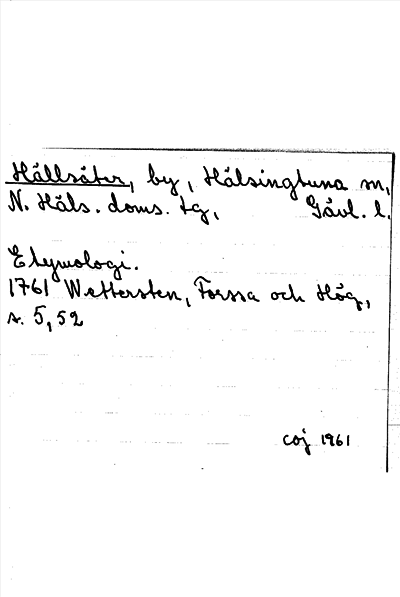 Hållsäter, by, Hälsingtuna sn,
N. Häls. doms. tg, Gävl. l.
Etymologi.
1761 Wettersten, Forssa och Hög,
s. 5, 52
coj 1961